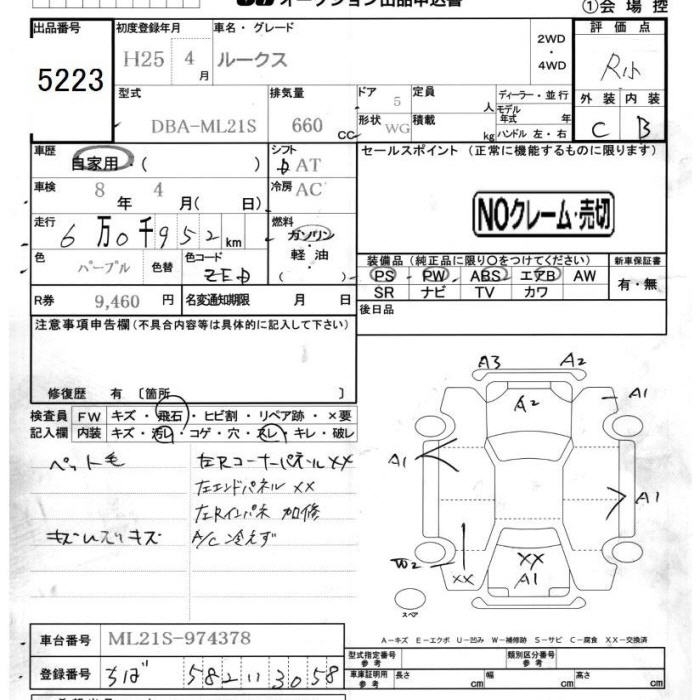 オークション出品申込書
①会場控
出品番号 初度登録年月 車名・グレード 評価点
5223 H25 4月 ルークス 2WD・4WD R小
型式 排気量 ドア 定員 人 ディーラー・並行 外装 内装
DBA-ML21S 660 CC 5 形状 WG 積載 kg モデル年式 年 ハンドル 左・右 C B
車歴 自家用・( ) シフト AT セールスポイント (正常に機能するものに限ります)
車検 8年 4月( 日) 冷房 AC
NOクレーム・売切
走行 6万0千952km 燃料 ガソリン・軽油 ( )
色 パープル 色替 カラーコード ZED
装備品(純正品に限り〇をつけてください) 新車保証書
PS PW ABS エアB AW 有・無
SR ナビ TV カワ
R券 9,460円 名変通知期限 月 日 後日品
注意事項申告欄(不具合内容等は具体的に記入して下さい)
修復歴 有〔箇所 〕
検査員 FW キズ・飛石・ヒビ割・リペア跡・×要
記入欄 内装 キズ・汚レ・コゲ・穴・スレ・キレ・破レ
ペット毛 左Rコーナーパネル XX
左エンドパネル XX
左Rインパネ 加修
A/C 冷えず
A3 A2
A2 A1
A1 A1
W2 XX XX A1
スペア
A-キズ E-エクボ U-凹み W-補修跡 S-サビ C-腐食 XX-交換済
車台番号 ML21S-974378
型式指定番号 参考 類別区分番号 参考
登録番号 ちば 582 い 3058
車庫証明用 参考 長さ cm 幅 cm 高さ cm